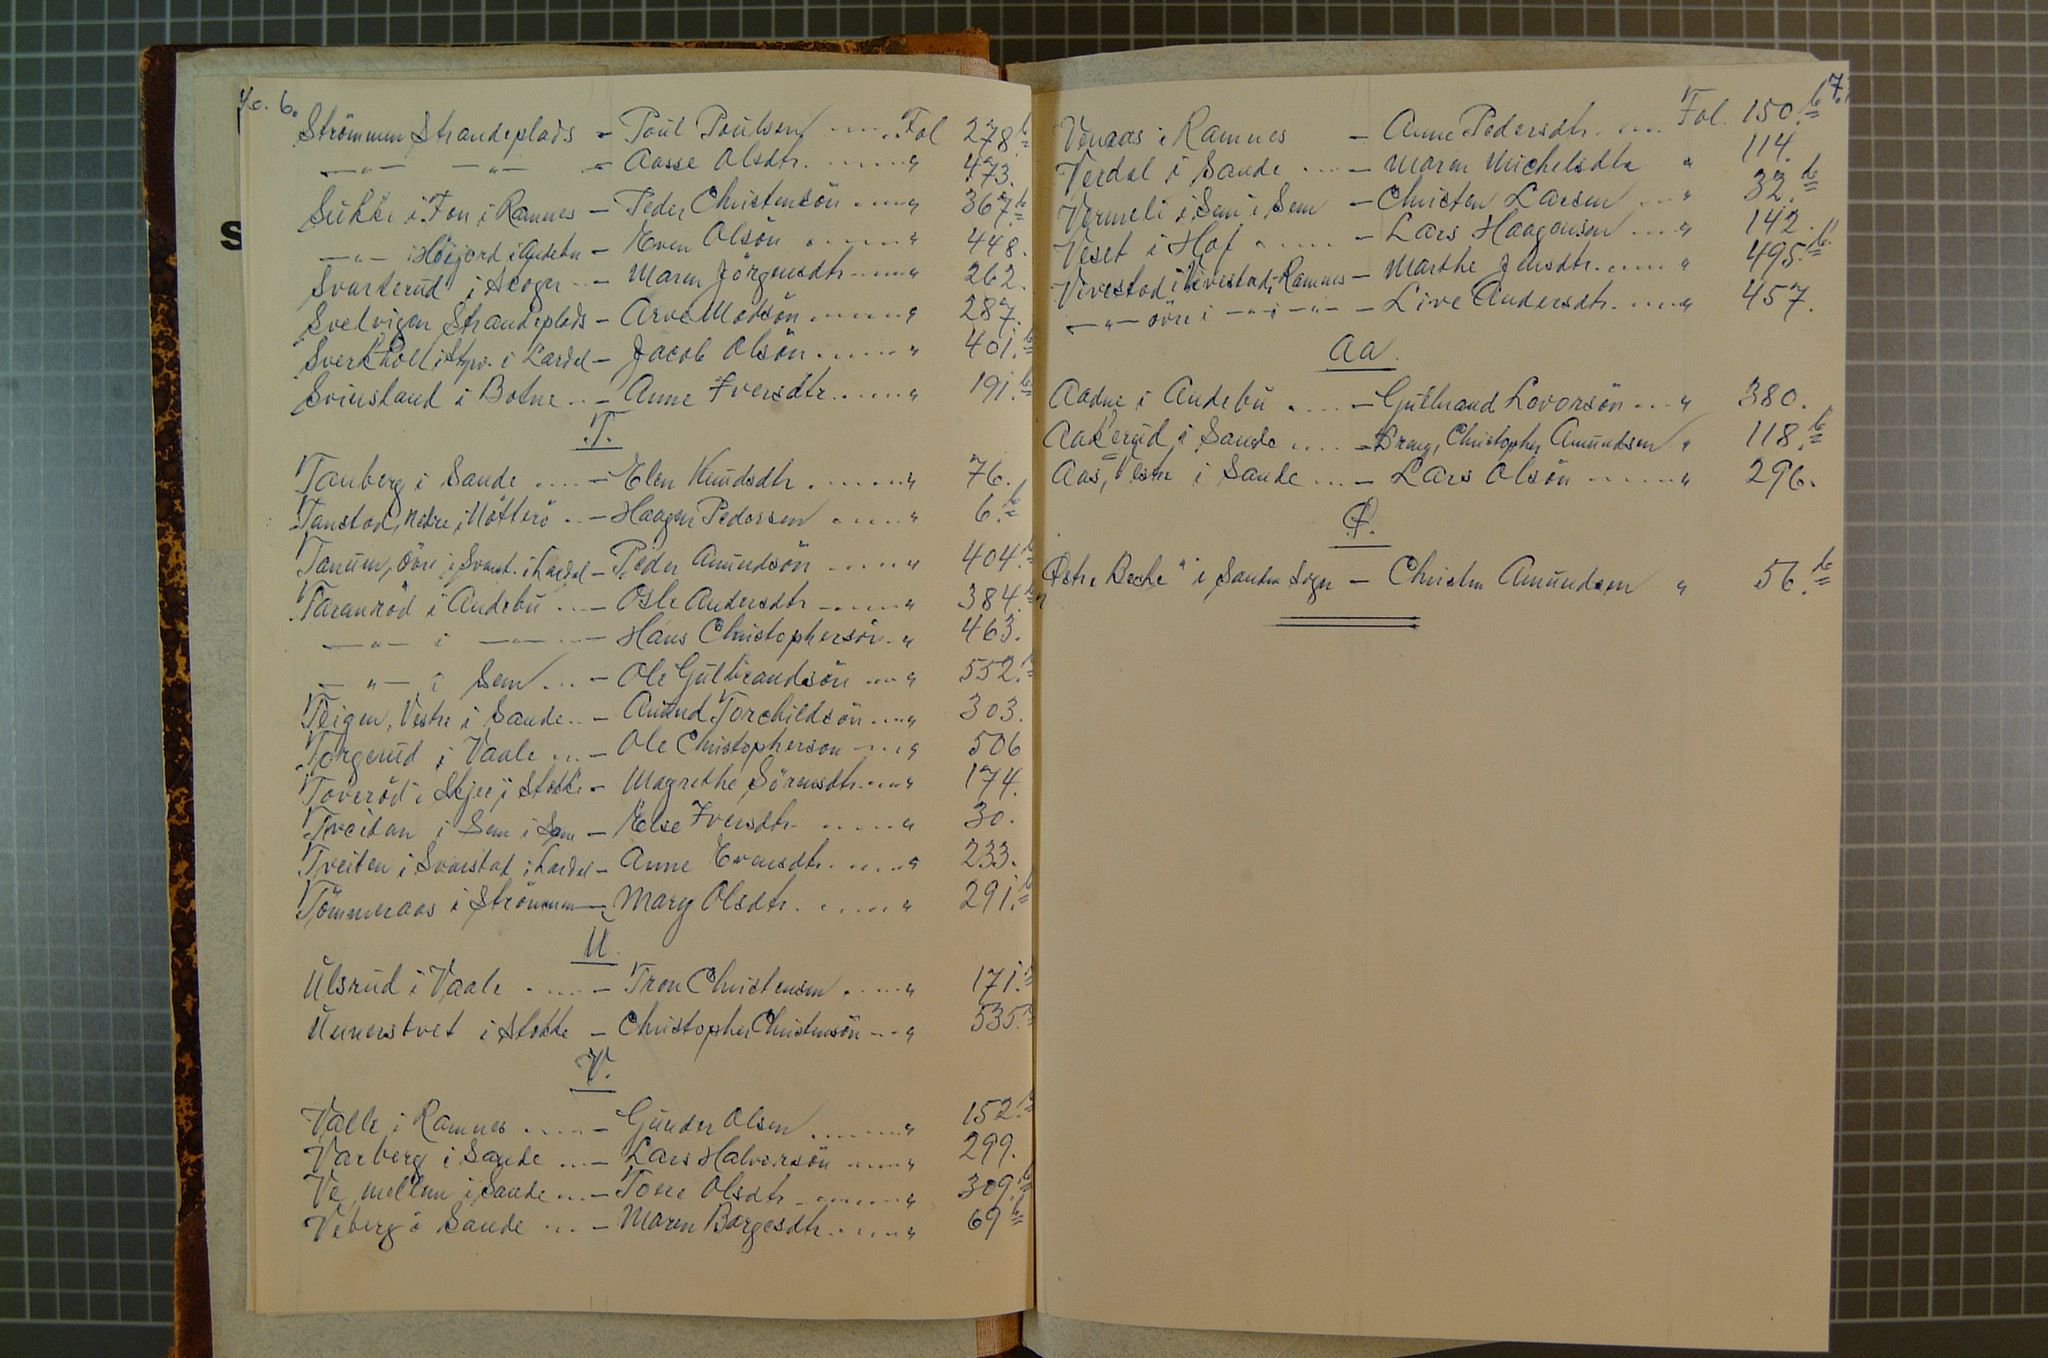 6.
Strömmen Strandeplads - Poul Poulsen ..... Fol 278 b
—"— —"— - Aasse Olsdtr. ..... " 473.
Sukke i Fon i Ramnes - Peder Christensön ..... " 367. b
—"— i Höijord i Andebu - Even Olsön ..... " 448.
Svarterud i Scoger .. - Maren Jörgensdtr ..... " 262.
Svelvigen Strandeplads - Arve Madsön ..... " 287.
Sverkholl i Hpv. i Lardal - Jacob Olsön ..... " 401. b
Svinsland i Botne .. - Anne Iversdtr. ..... " 191. b
T.
Tanberg i Sande .... - Elen Knudsdtr ..... " 76.
Tanstad, Nedre i Nötterö .. - Haagen Pedersen ..... " 6. b
Tanum, övre i Svarst. i Lardal - Peder Amundsön ..... " 404. b
Taranröd i Andebu ... - Osle Andersdtr ..... " 384. b
—"— i —"— - Hans Christophersön .. " 463.
—"— i Sem ... - Ole Gulbrandsön ... " 552. b
Teigen, Vestre i Sande .. - Amund Torchildsön .... " 303.
Torgerud i Vaale ... - Ole Christopherson ... " 506
Toveröd i Skjee i Stokke - Magrethe Sörensdtr .... " 174.
Treidan i Sem i Sem - Else Iversdtr. ..... " 30.
Treiten i Svarstad i Lardal - Anne Evensdtr. ..... " 233.
Tömmeraas i Strömmen - Mary Olsdtr. ..... " 291. b
U.
Ulsrud i Vaale ..... - Tron Christensen ..... " 171. b
Unnerstvet i Stokke - Christopher Christensön ... " 535. b
V.
Valle i Ramnes ..... - Gunder Olsen ..... " 152. b
Varberg i Sande ... - Lars Halvorsön ..... " 299.
Ve, mellem i Sande ... - Tore Olsdtr ..... " 309. b
Veberg i Sande ... - Maren Borgesdtr ..... " 69 b
7.
Venaas i Ramnes - Anne Pedersdtr. .... Fol. 150. b
Verdal i Sande .... - Maren Michelsdtr " 114.
Vermeli i Sem i Sem - Christen Larsen ... " 32. b
Veset i Hof ..... - Lars Haagensen .... " 142.
Vivestad i Vivestad i Ramnes - Marthe Jensdtr. .... " 495. b
—"— övre i —"— i —"— - Live Andersdtr. .... " 457.
Aa.
Aadne i Andebu .... - Gulbrand Lavorsön ... " 380.
Aakerud i Sande .... - Brang, Christopher Amundsen " 118. b
Aas, Vestre i Sande ... - Lars Olsön ..... " 296.
Ø.
Østre Beche " i Sande Sogn - Christen Amundsen " 56. b